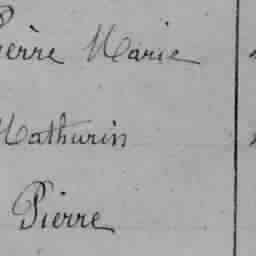 Pierre Marie
Mathurin
Pierre